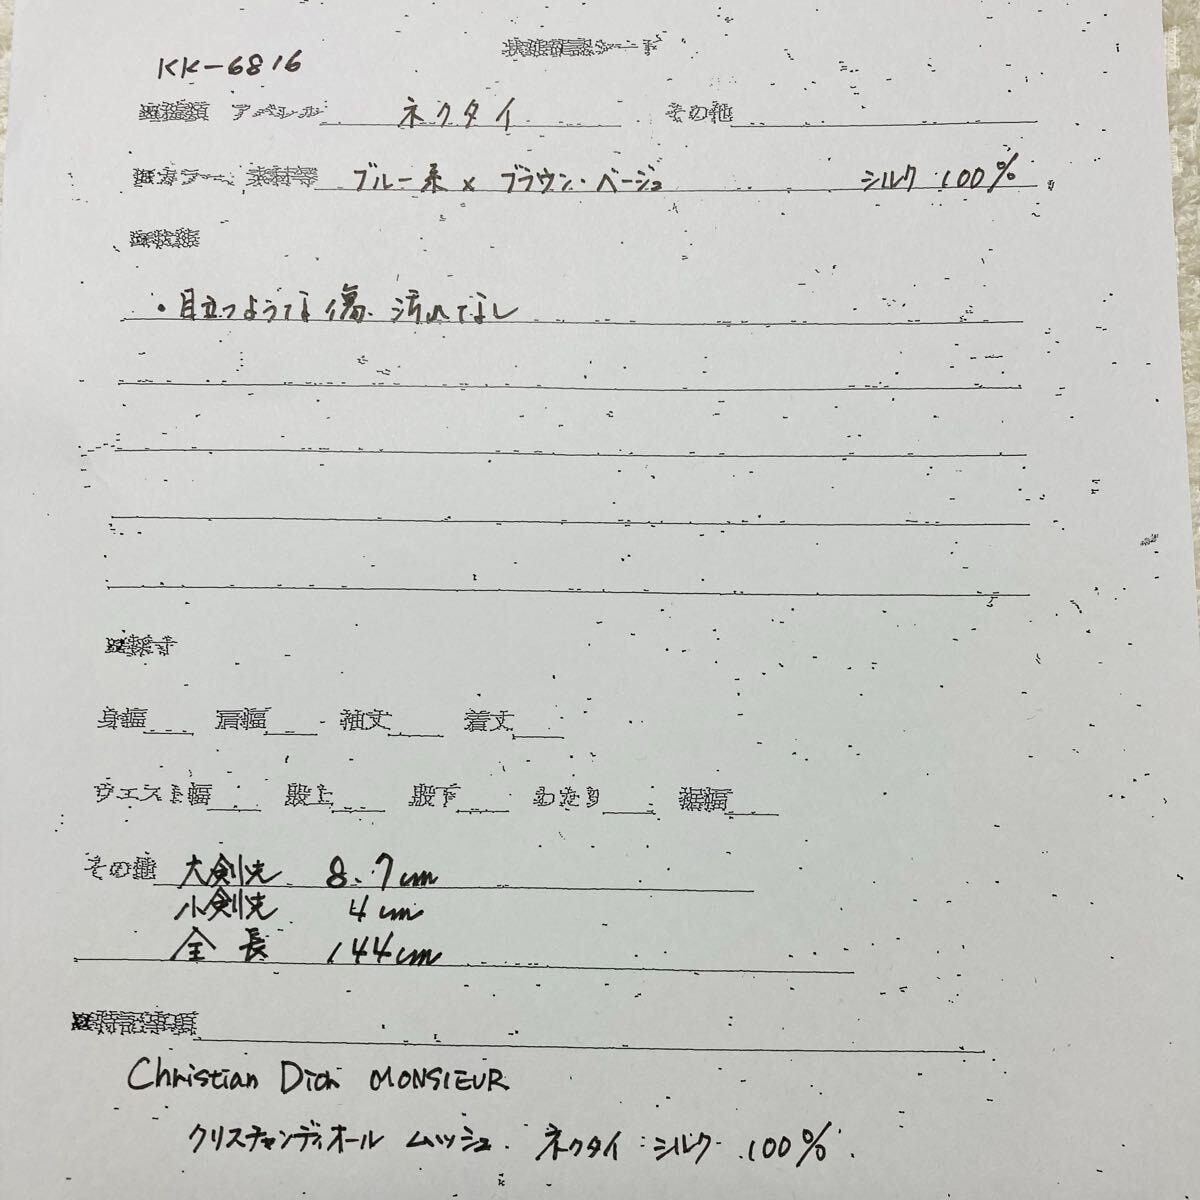 状態確認シート
KK-6816
種類 アパレル ネクタイ その他
カラー、素材等 ブルー系 × ブラウン・ベージュ シルク 100%
状態
・目立つような傷、汚れなし
採寸
身幅 肩幅 袖丈 着丈
ウエスト幅 股上 股下 わたり 裾幅
その他 大剣先 8.7cm
小剣先 4cm
全長 144cm
特記事項
Christian Dior MONSIEUR
クリスチャンディオール ムッシュ. ネクタイ:シルク 100%.